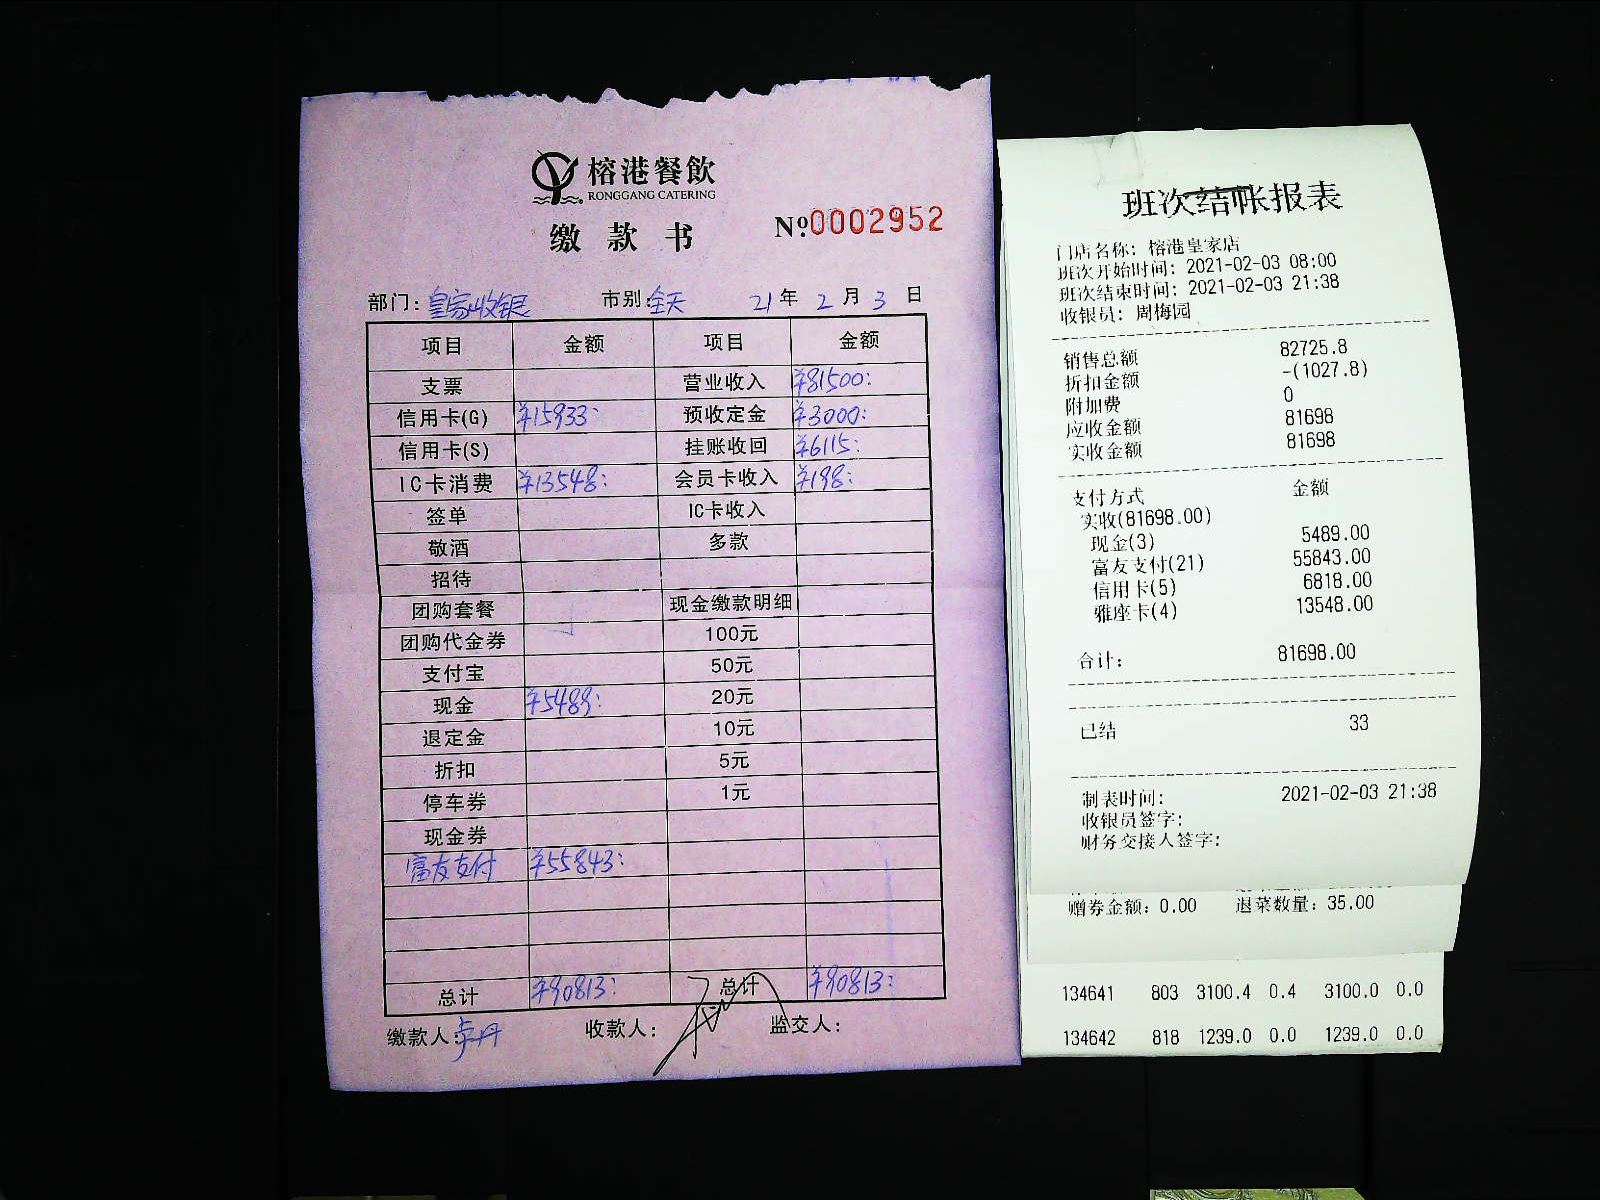 榕港餐飲
RONGGANG CATERING
缴款书 №0002952
部门:皇家收银 市别:全天 21年2月3日
项目 金额 项目 金额
支票 营业收入 ¥81500:
信用卡(G) ¥15933: 预收定金 ¥3000:
信用卡(S) 挂账收回 ¥6115:
IC卡消费 ¥13548: 会员卡收入 ¥198:
签单 IC卡收入
敬酒 多款
招待
团购套餐 现金缴款明细
团购代金券 100元
支付宝 50元
现金 ¥5489: 20元
退定金 10元
折扣 5元
停车券 1元
现金券
富友支付 ¥55843:
总计 ¥90813: 总计 ¥90813:
缴款人: 收款人: 监交人:
班次结帐报表
门店名称: 榕港皇家店
班次开始时间: 2021-02-03 08:00
班次结束时间: 2021-02-03 21:38
收银员: 周梅园
销售总额 82725.8
折扣金额 -(1027.8)
附加费 0
应收金额 81698
实收金额 81698
支付方式 金额
实收(81698.00)
现金(3) 5489.00
富友支付(21) 55843.00
信用卡(5) 6818.00
雅座卡(4) 13548.00
合计: 81698.00
已结 33
制表时间: 2021-02-03 21:38
收银员签字:
财务交接人签字:
赠券金额: 0.00 退菜数量: 35.00
134641 803 3100.4 0.4 3100.0 0.0
134642 818 1239.0 0.0 1239.0 0.0